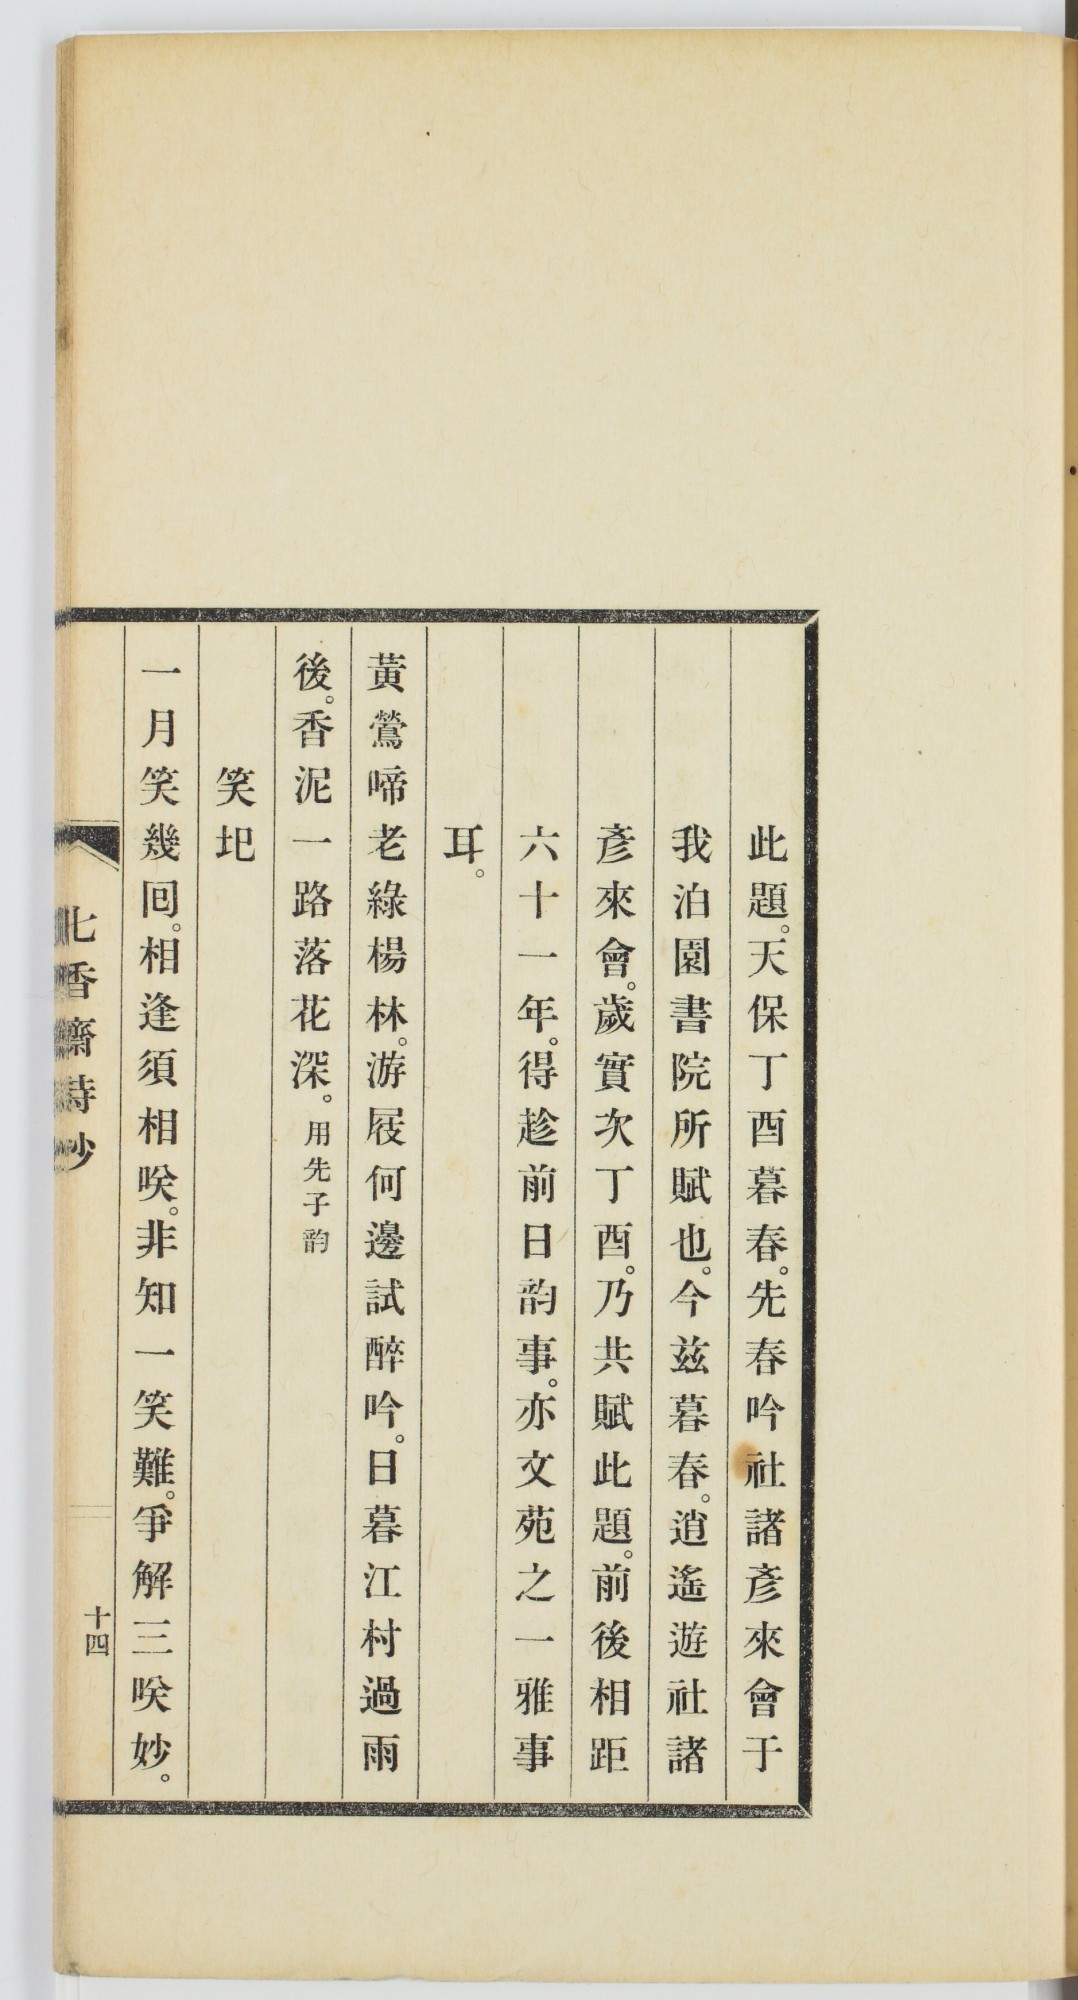 此題。天保丁酉暮春。先春吟社諸彥來會于
我泊園書院所賦也。今茲暮春。逍遙遊社諸
彥來會。歲實次丁酉。乃共賦此題。前後相距
六十一年。得趁前日韵事。亦文苑之一雅事
耳。
黃鶯啼老綠楊林。游屐何邊試醉吟。日暮江村過雨
後。香泥一路落花深。用先子韵
笑圯
一月笑幾囘。相逢須相咲。非知一笑難。爭解三咲妙。
七香齋詩抄
十四